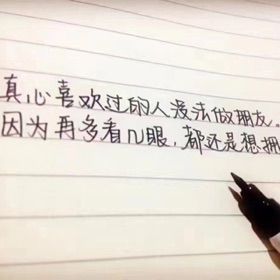 真心喜欢过的人没法做朋友。
因为再多看几眼,都还是想拥